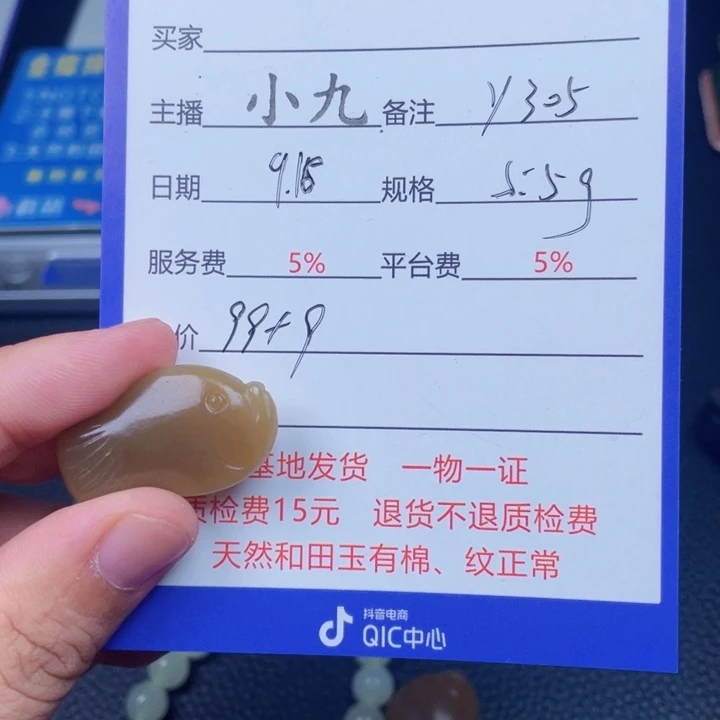 买家
主播 小九 备注 y305
日期 9.18 规格 5.5g
服务费 5% 平台费 5%
价 99+9
基地发货 一物一证
质检费15元 退货不退质检费
天然和田玉有棉、纹正常
抖音电商
QIC中心